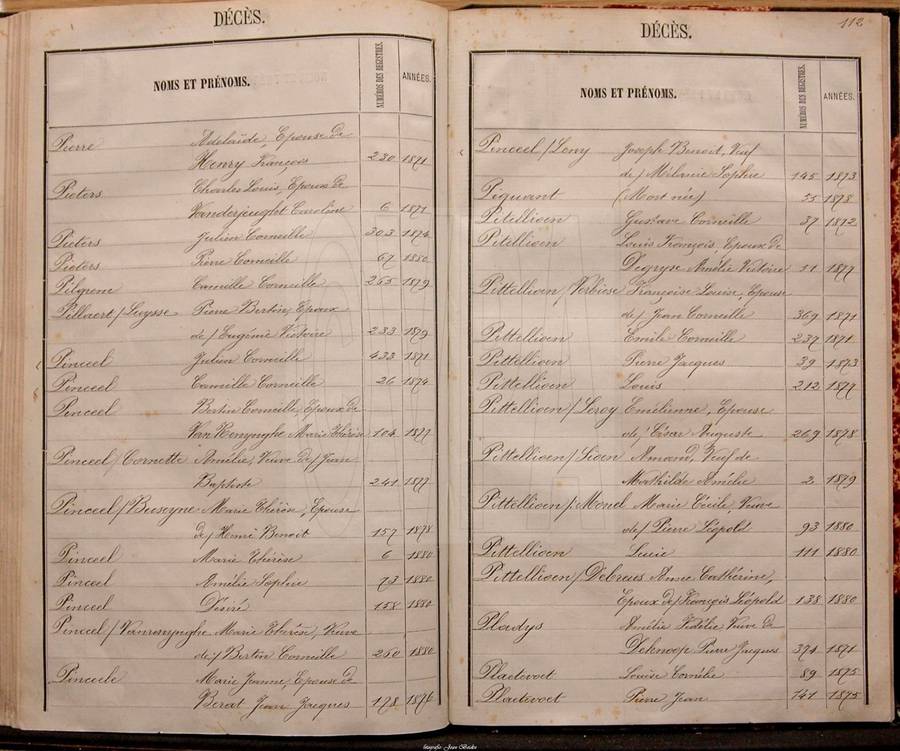 DÉCÈS.
NOMS ET PRÉNOMS. NUMÉROS DES REGISTRES. ANNÉES.
Pierre Adelaïde, Epouse de
Henry François 230 1871
Pieters Charles Louis, Epoux de
Vanderjeught Caroline 6 1871
Pieters Julien Corneille 303 1874
Pieters Pierre Corneille 67 1880
Pilgrem Camille Corneille 265 1879
Pillaert/Luysse Pierre Bertin, Epoux
de/ Eugénie Victoire 233 1879
Pinceel Julien Corneille 433 1871
Pinceel Camille Corneille 26 1874
Pinceel Bertin Corneille, Epoux de
Van Renynghe Marie Thérèse 104 1877
Pinceel/Cornette Amélie, Veuve de/ Jean
Baptiste 241 1877
Pinceel/ Marie Thérèse, Epouse
de/ Henri Benoit 157 1878
Pinceel Marie Thérèse 6 1880
Pinceel Amélie Sophie 73 1880
Pinceel Désiré 158 1880
Pinceel/Vanrenynghe Marie Thérèse, Veuve
de/ Bertin Corneille 250 1880
Pinceele Marie Jeanne, Epouse de
Berat Jean Jacques 178 1876
DÉCÈS. 112
NOMS ET PRÉNOMS. NUMÉROS DES REGISTRES. ANNÉES.
Pinceel/Leny Joseph Benoit, Veuf
de/ Mélanie Sophie 145 1873
Piquant (Mort né) 55 1878
Pitellioen Gustave Corneille 37 1872
Pitellioen Louis François, Epoux de
Degryse Amélie Victoire 11 1877
Pittellioen/Verbiese Françoise Louise, Epouse
de/ Jean Corneille 369 1871
Pittellioen Emile Corneille 237 1871
Pittellioen Pierre Jacques 39 1873
Pittellioen Louis 212 1877
Pittellioen/Leroy Emélienne, Epouse
de/ César Auguste 269 1878
Pittellioen/Sioen Amand, Veuf de
Mathilde Amélie 2 1879
Pittellioen/Morel Marie Cécile, Veuve
de/ Pierre Léopold 93 1880
Pittellioen Lucie 111 1880
Pittellioen/Debreus Anne Cathérine,
Epoux de/ François Léopold 138 1880
Pladys Amélie Fidélie Veuve de
Deknoop Pierre Jacques 374 1871
Plaetevoet Louise Cornélie 89 1875
Plaetevoet Pierre Jean 141 1875